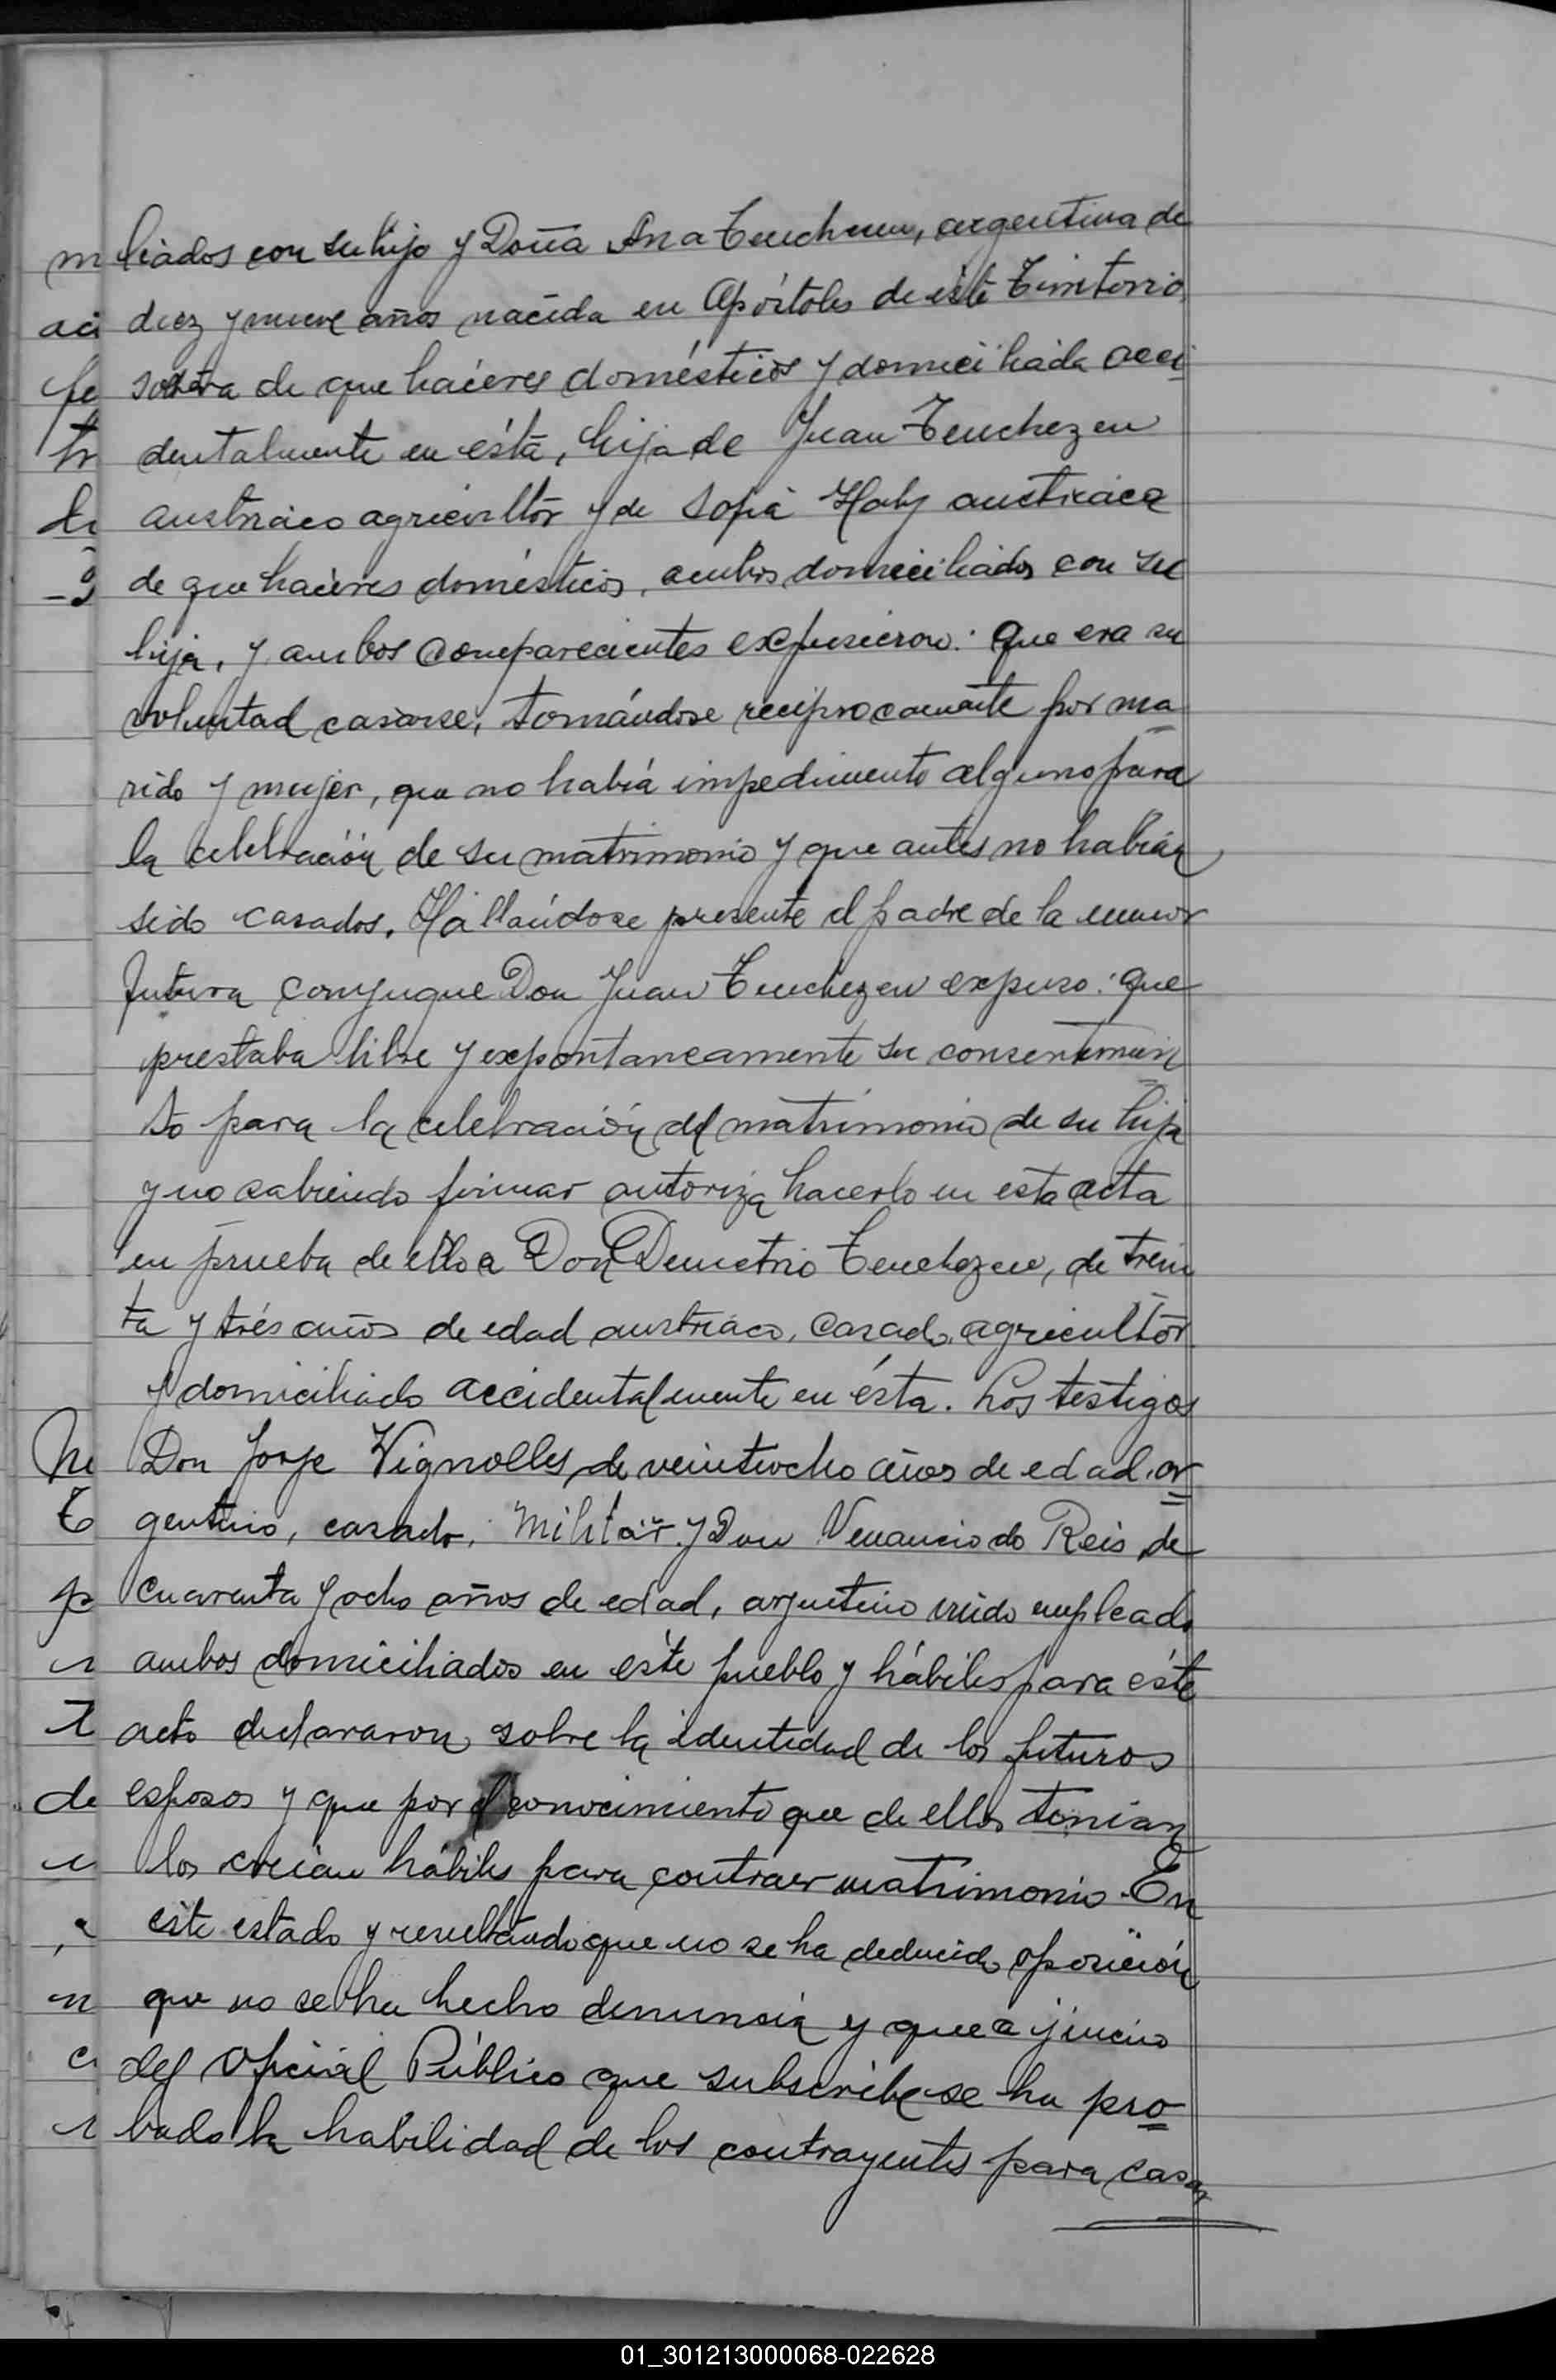 liados con su hijo y Doña Ana Tenchezen, argentina de
diez y nueve años nacida en Apóstoles de este Territorio,
soltera de que haceres domésticos y domiciliada acci
dentalmente en ésta, hija de Juan Tenchezen
austriaco agricultor y de Sofia Haly austriaca
de que haceres domésticos, ambos domiciliados con su
hija, y ambos comparecientes expusieron: que era su
voluntad casarse, tomándose reciprocamente por ma
rido y mujer, que no había impedimento alguno para
la celebración de su matrimonio y que antes no habían
sido casados. Hallándose presente el padre de la menor
futura conyugue Don Juan Tenchezen expuso: que
prestaba libre y expontaneamente su consentimien
to para la celebración del matrimonio de su hija
y no sabiendo firmar autoriza hacerlo en esta acta
en prueba de ello a Don Demetrio Tenchezen, de trein
ta y trés años de edad austriaco, casado, agricultor
y domiciliado accidentalmente en ésta. Los testigos
Don Jorje Vignolles, de veintiocho años de edad, ar
gentino, casado, militar y Don Venancio do Reis, de
cuarenta y ocho años de edad, arjentino viudo empleado
ambos domiciliados en este pueblo y hábiles para éste
acto declararon sobre la identidad de los futuros
esposos y que por el conocimiento que de ellos tenian
los creian hábiles para contraer matrimonio. En
este estado y resultando que no se ha deducido oposición
que no se ha hecho denuncia y que a juicio
del Oficial Público que subscribe se ha pro
bado la habilidad de los contrayentes para casar
01_301213000068-022628